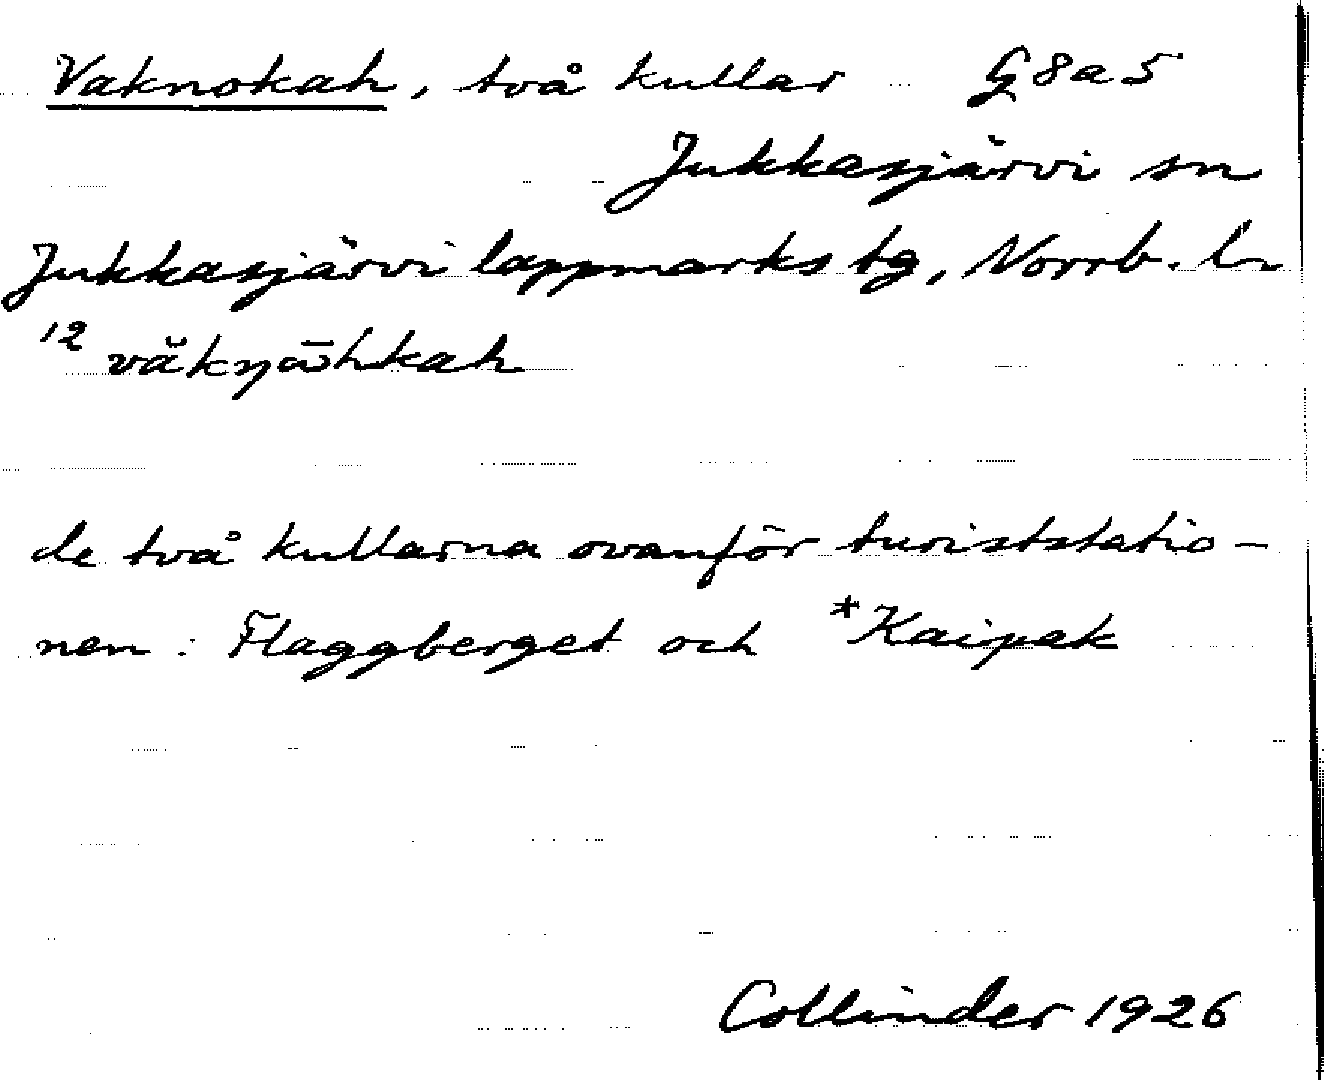 Vaknokah, två kullar G8a5
Jukkasjärvi sn
Jukkasjärvi lappmarks tg, Norrb. ln
12
de två kullarna ovanför turiststatio-
nen: Flaggberget och *Kaipak
Collinder 1926